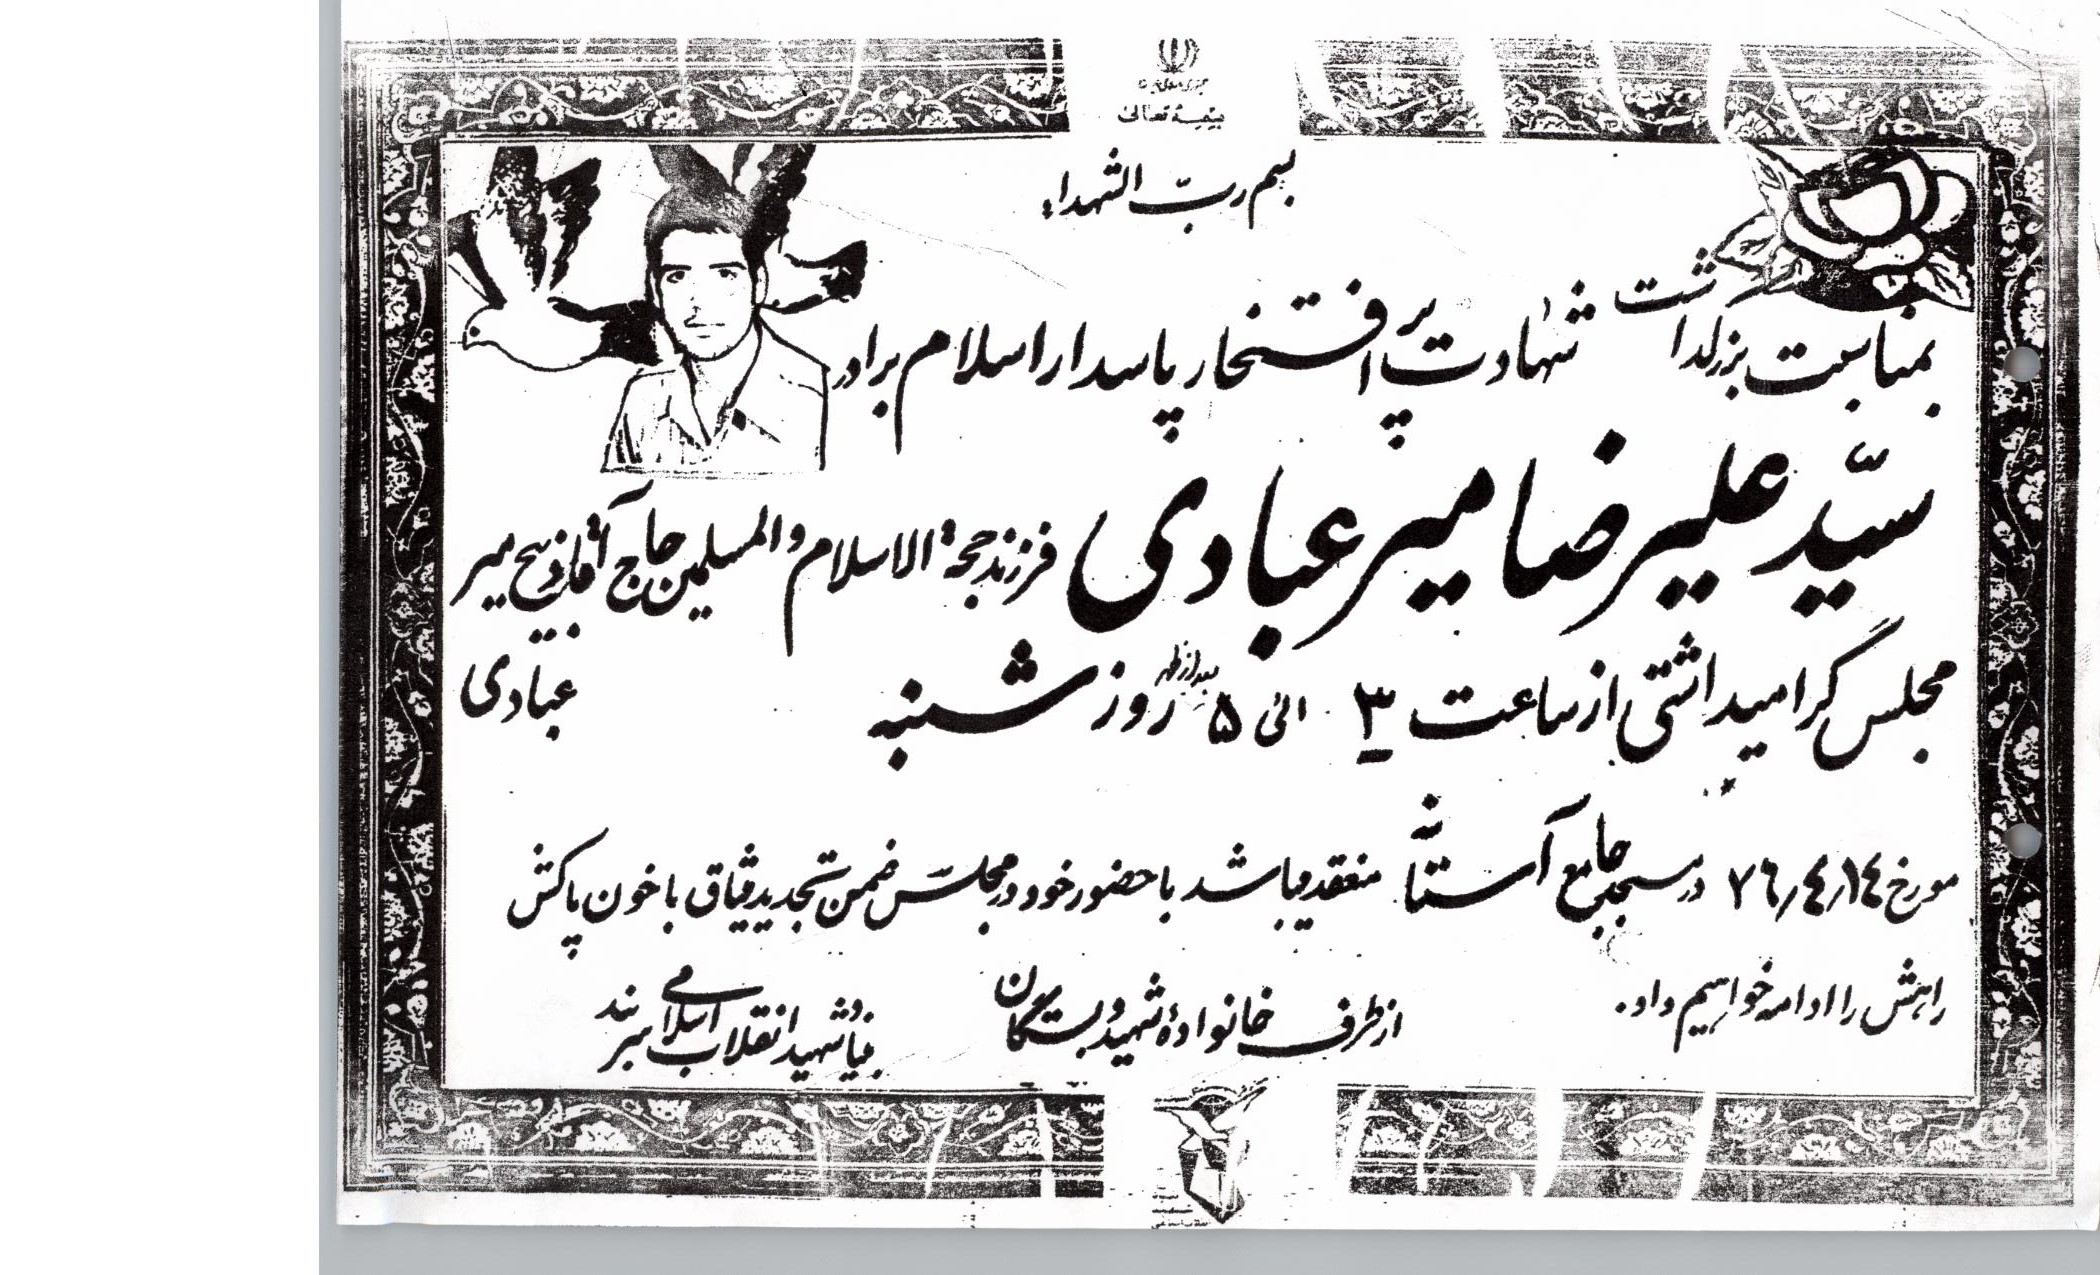 بسمه تعالی
بسم ربّ الشهداء
بمناسبت بزرگداشت شهادت پر افتخار پاسدار اسلام برادر
سیّد علیرضا میر عبادی فرزند حجة الاسلام والمسلمین حاج آقا ذبیح میر
عبادی
مجلس گرامیداشتی از ساعت ۳ الی ۵ بعد از ظهر روز شنبه
مورخ ۷۶٫۴٫۱۴ در مسجد جامع آستانه منعقد میباشد با حضور خود در مجلس ضمن تجدید میثاق با خون پاکش
راهش را ادامه خواهیم داد.
از طرف خانوادهٔ شهید و بستگان
بنیاد شهید انقلاب اسلامی سربند